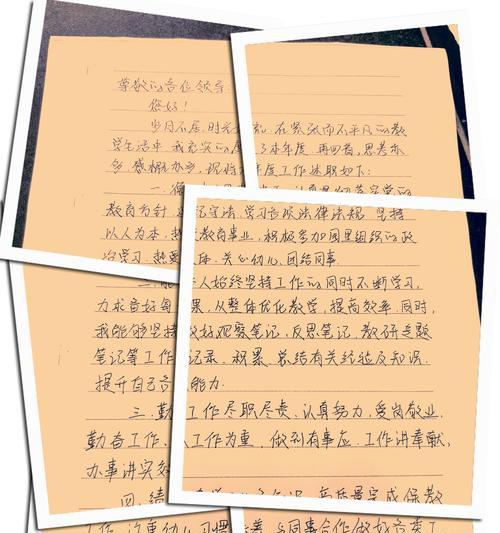 尊敬的各位领导
您好!
岁月不居,时光 在紧张而不平凡的教
学生活中,我充实的 了本年度.再回首,思考亦
多,感慨亦多,现将 年度工作述职如下:
一、
教育方针 纪守法,学习各项法律法规,坚持
以人为本,热 教育事业,积极参加园里组织的政
治学习,热爱 体,关心幼儿,团结同事.
人始终坚持工作的同时不断学习,
力求音好每 果,从整体优化教学,提高效率.同时,
我能够坚持 好观察笔记,反思笔记,教研专题
笔记等工作 记录,积累、总结有关经验及知识.
提升自己 能力.
三、勤 工作尽职尽责,认真努力,爱岗敬业,
勤奋工作, 工作为重,做到有事应.工作讲奉献,
办事讲实
四、绩 高质量完成保教
工作,注重幼儿习惯 养,与同事合作做好各类工